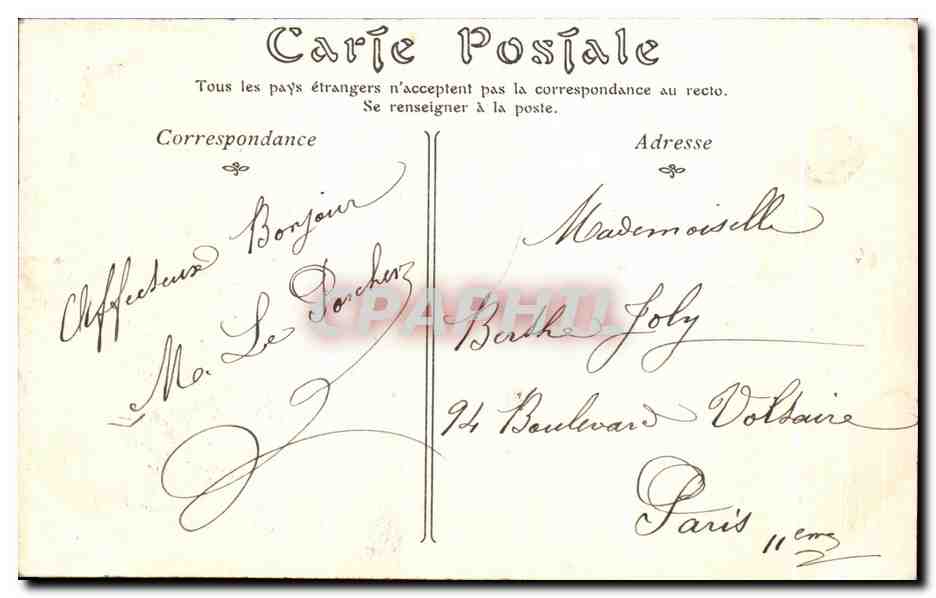 Carte Postale
Tous les pays étrangers n'acceptent pas la correspondance au recto.
Se renseigner à la poste.
Correspondance
Affectueux Bonjour
M. Le Porcher
Adresse
Mademoiselle
Berthe Joly
94 Boulevard Voltaire
Paris 11eme
CPAPHIL